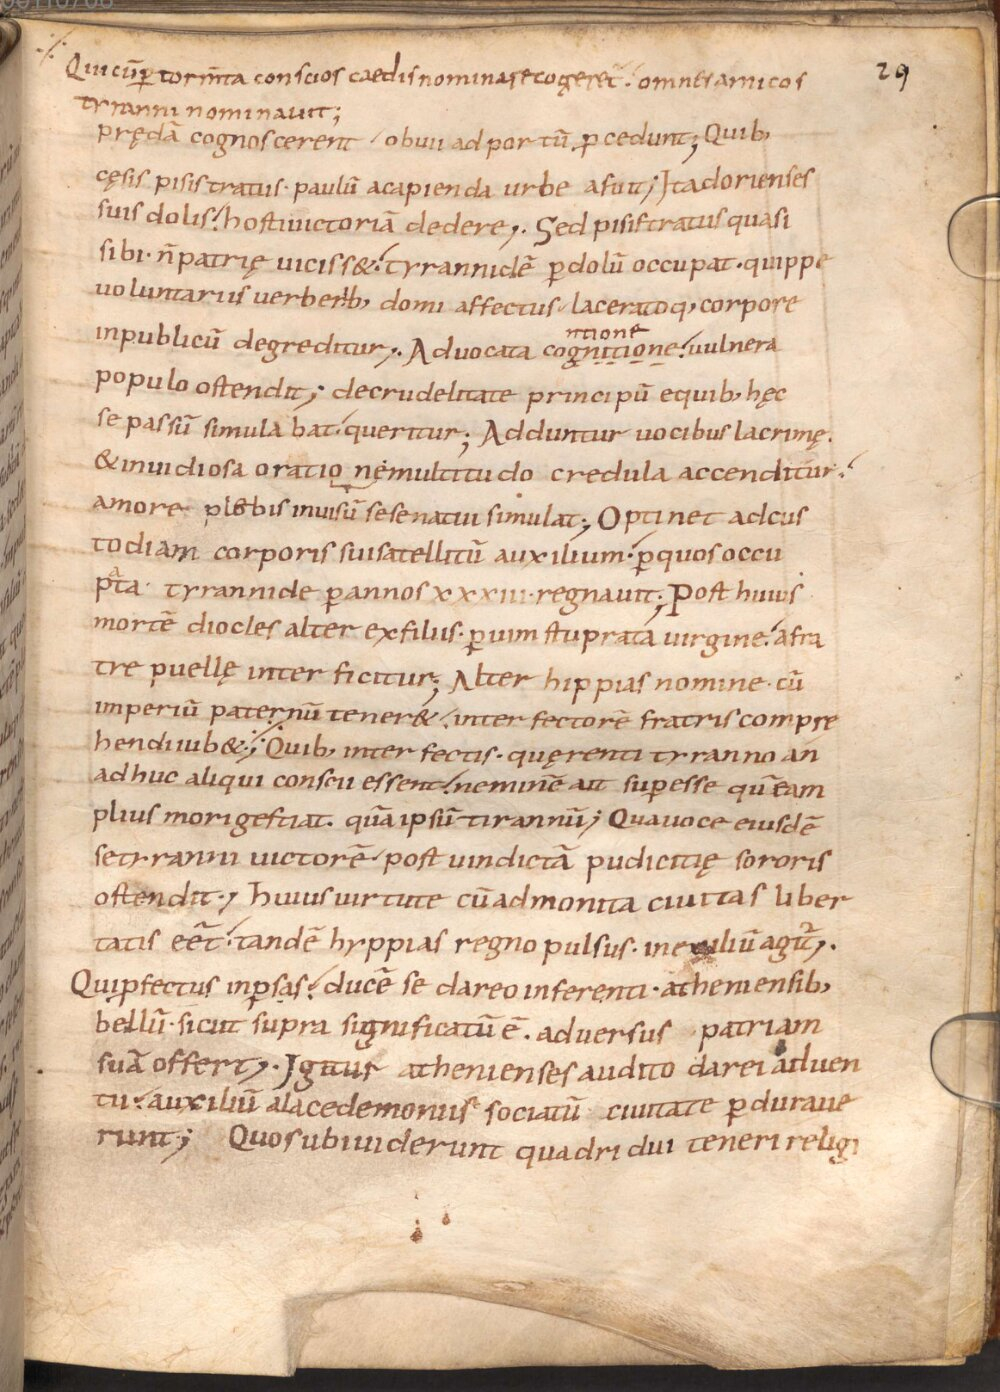 29
Quicū ꝑ tormta conscios caedis nominare cogeret̄. omnes amicos
tyranni nominauit;
prędā cognoscerent obuii ad portū ꝓcedunt; Quib,
cęsis pisistratus. paulū a capienda urbe afuit; Ita dorienses
suis dolis. hosti uictoriā dedere,. Sed pisistratus quasi
sibi. n̄ patrię uiciss&. tyrannidē ꝑ dolū occupat. quippe
uoluntariis uerberib, domi affectus laceratoq, corpore
in publicū degreditur,. Aduocata cognitione. uulnera
ntione
populo ostendit; de crudelitate principū e quib, hęc
se passū simulabat. queritur; Adduntur uocibus lacrimę.
& inuidiosa oratione multitudo credula accenditur.
amore plebis inuisū se senatui simulat; Optinet ad cus
todiam corporis sui satellitū auxilium. ꝑ quos occu
pta tyrannide ꝑ annos xxxiii. regnauit; Post huius
a
mortē diocles alter ex filius. ꝑ uim stuprata uirgine. a fra
tre puellę interficitur; Alter hippias nomine. cū
imperiū paternū tener&. interfectorē fratris compre
hendi iub&.; Quib, interfectis. quęrenti tyranno an
adhuc aliqui conscii essent. neminē ait superesse quē am
plius mori gestiat. quā ipsū tirannū; Qua uoce eiusdē
se tyranni uictorē post uindictā pudicitię sororis
ostendit.; huius uirtute cū admonita ciuitas liber
tatis eēt. tandē hyppias regno pulsus. in exiliū agit̄,.
Qui ꝓfectus in ꝑsas. ducē se dareo inferenti. atheniensib,
bellū. sicut supra significatū ē. aduersus patriam
suā offert,. Igitur athenienses audito darei aduen
tu. auxiliū a lacedemoniis sociatū ciuitate ꝑdUraue
runt; Quos ubi uiderunt quadridui teneri religi